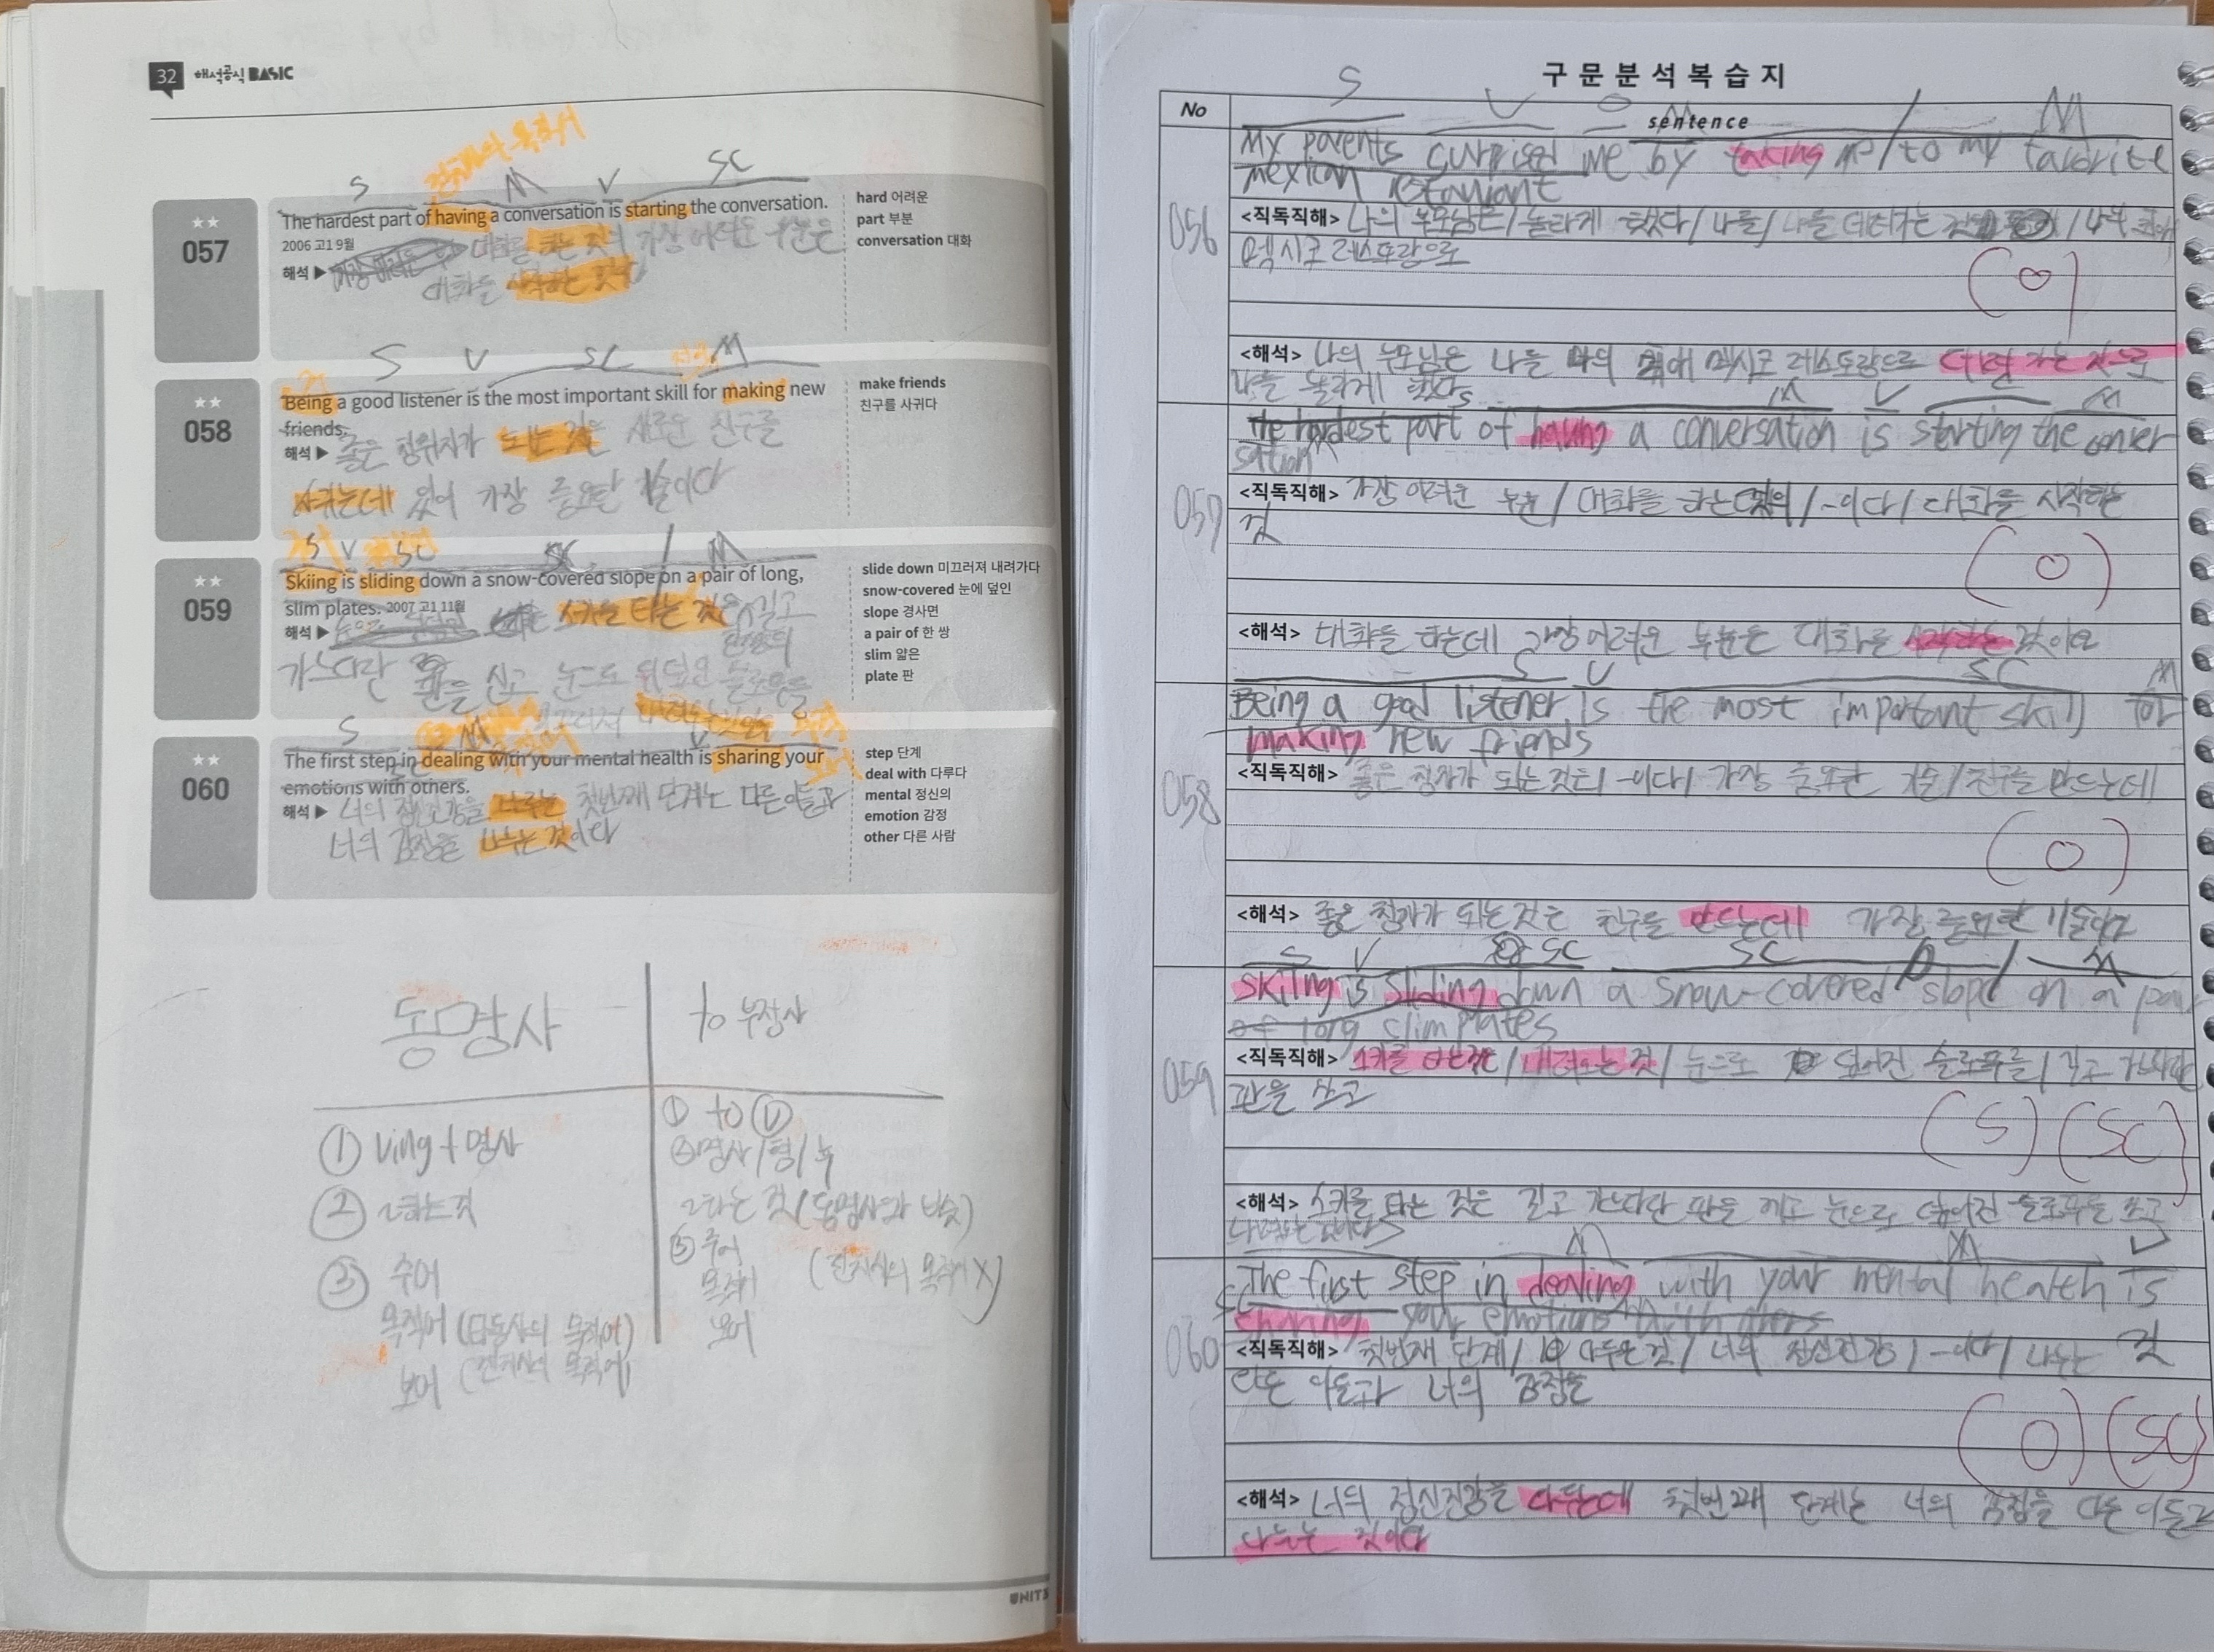 32 해석공식 BASIC
전치사의 목적어
S M V SC
★★
057
The hardest part of having a conversation is starting the conversation.
2006 고1 9월
해석 ▶ 대화를 하는 것의 가장 어려운 부분은
대화를 시작하는 것이다
hard 어려운
part 부분
conversation 대화
S V SC M
★★
058
Being a good listener is the most important skill for making new
friends.
해석 ▶ 좋은 청취자가 되는 것은 새로운 친구를
사귀는데 있어 가장 중요한 기술이다
make friends
친구를 사귀다
S V SC SC / M
★★
059
Skiing is sliding down a snow-covered slope on a pair of long,
slim plates. 2007 고1 11월
해석 ▶ 스키를 타는 것은 길고
가느다란 판을 신고 눈으로 뒤덮인 슬로프를
미끄러져 내려오는 것이다
slide down 미끄러져 내려가다
snow-covered 눈에 덮인
slope 경사면
a pair of 한 쌍
slim 얇은
plate 판
S M V
★★
060
The first step in dealing with your mental health is sharing your
emotions with others.
해석 ▶ 너의 정신건강을 다루는 첫번째 단계는 다른이들과
너의 감정을 나누는 것이다
step 단계
deal with 다루다
mental 정신의
emotion 감정
other 다른 사람
동명사 to 부정사
① Ving + 명사
② ~하는 것
③ 주어
목적어 (타동사의 목적어)
(전치사의 목적어)
보어
① to Ⓥ
② 명사/형/부
~하는 것 (동명사과 비슷)
③ 주어
목적어 (전치사의 목적어 X)
보어
UNIT 3
구문분석복습지
No sentence
S V O M / M
056
My parents surprised me by taking me / to my favorite
mexican restaurant
<직독직해> 나의 부모님은 / 놀라게 했다 / 나를 / 나를 데려가는
멕시코 레스토랑으로
(O)
<해석> 나의 부모님은 나를 나의 멕시코 레스토랑으로 데려 가는 것으로
나를 놀라게 했다
S M V M
057
The hardest part of having a conversation is starting the conver
sation
<직독직해> 가장 어려운 부분 / 대화를 하는것의 / -이다 / 대화를 시작하는
것
(O)
<해석> 대화를 하는데 가장 어려운 부분은 대화를 시작하는 것이다
S V SC M
058
Being a good listener is the most important skill for
making new friends
<직독직해> 좋은 청자가 되는것은 / -이다 / 가장 중요한 기술 / 친구를 만드는데
(O)
<해석> 좋은 청자가 되는것은 친구를 만드는데 가장 중요한 기술이다
S V SC SC / M
059
skiing is sliding down a snow-covered slope on a pair
of long slim plates
<직독직해> 스키를 타는것은 / 내려오는 것 / 눈으로 덮어진 슬로프를 / 길고 가느다란
판을 쓰고
(S) (SC)
<해석> 스키를 타는 것은 길고 가느다란 판을 끼고 눈으로 덮어진 슬로프를 쓰고
내려오는 것이다
S M M V
060
The first step in dealing with your mental health is
SC
sharing your emotions with others
<직독직해> 첫번째 단계 / 다루는것 / 너의 정신건강 / -이다 / 나누는 것
다른 이들과 너의 감정을
(O) (SC)
<해석> 너의 정신건강을 다루는데 첫번째 단계는 너의 감정을 다른 이들과
나누는 것이다